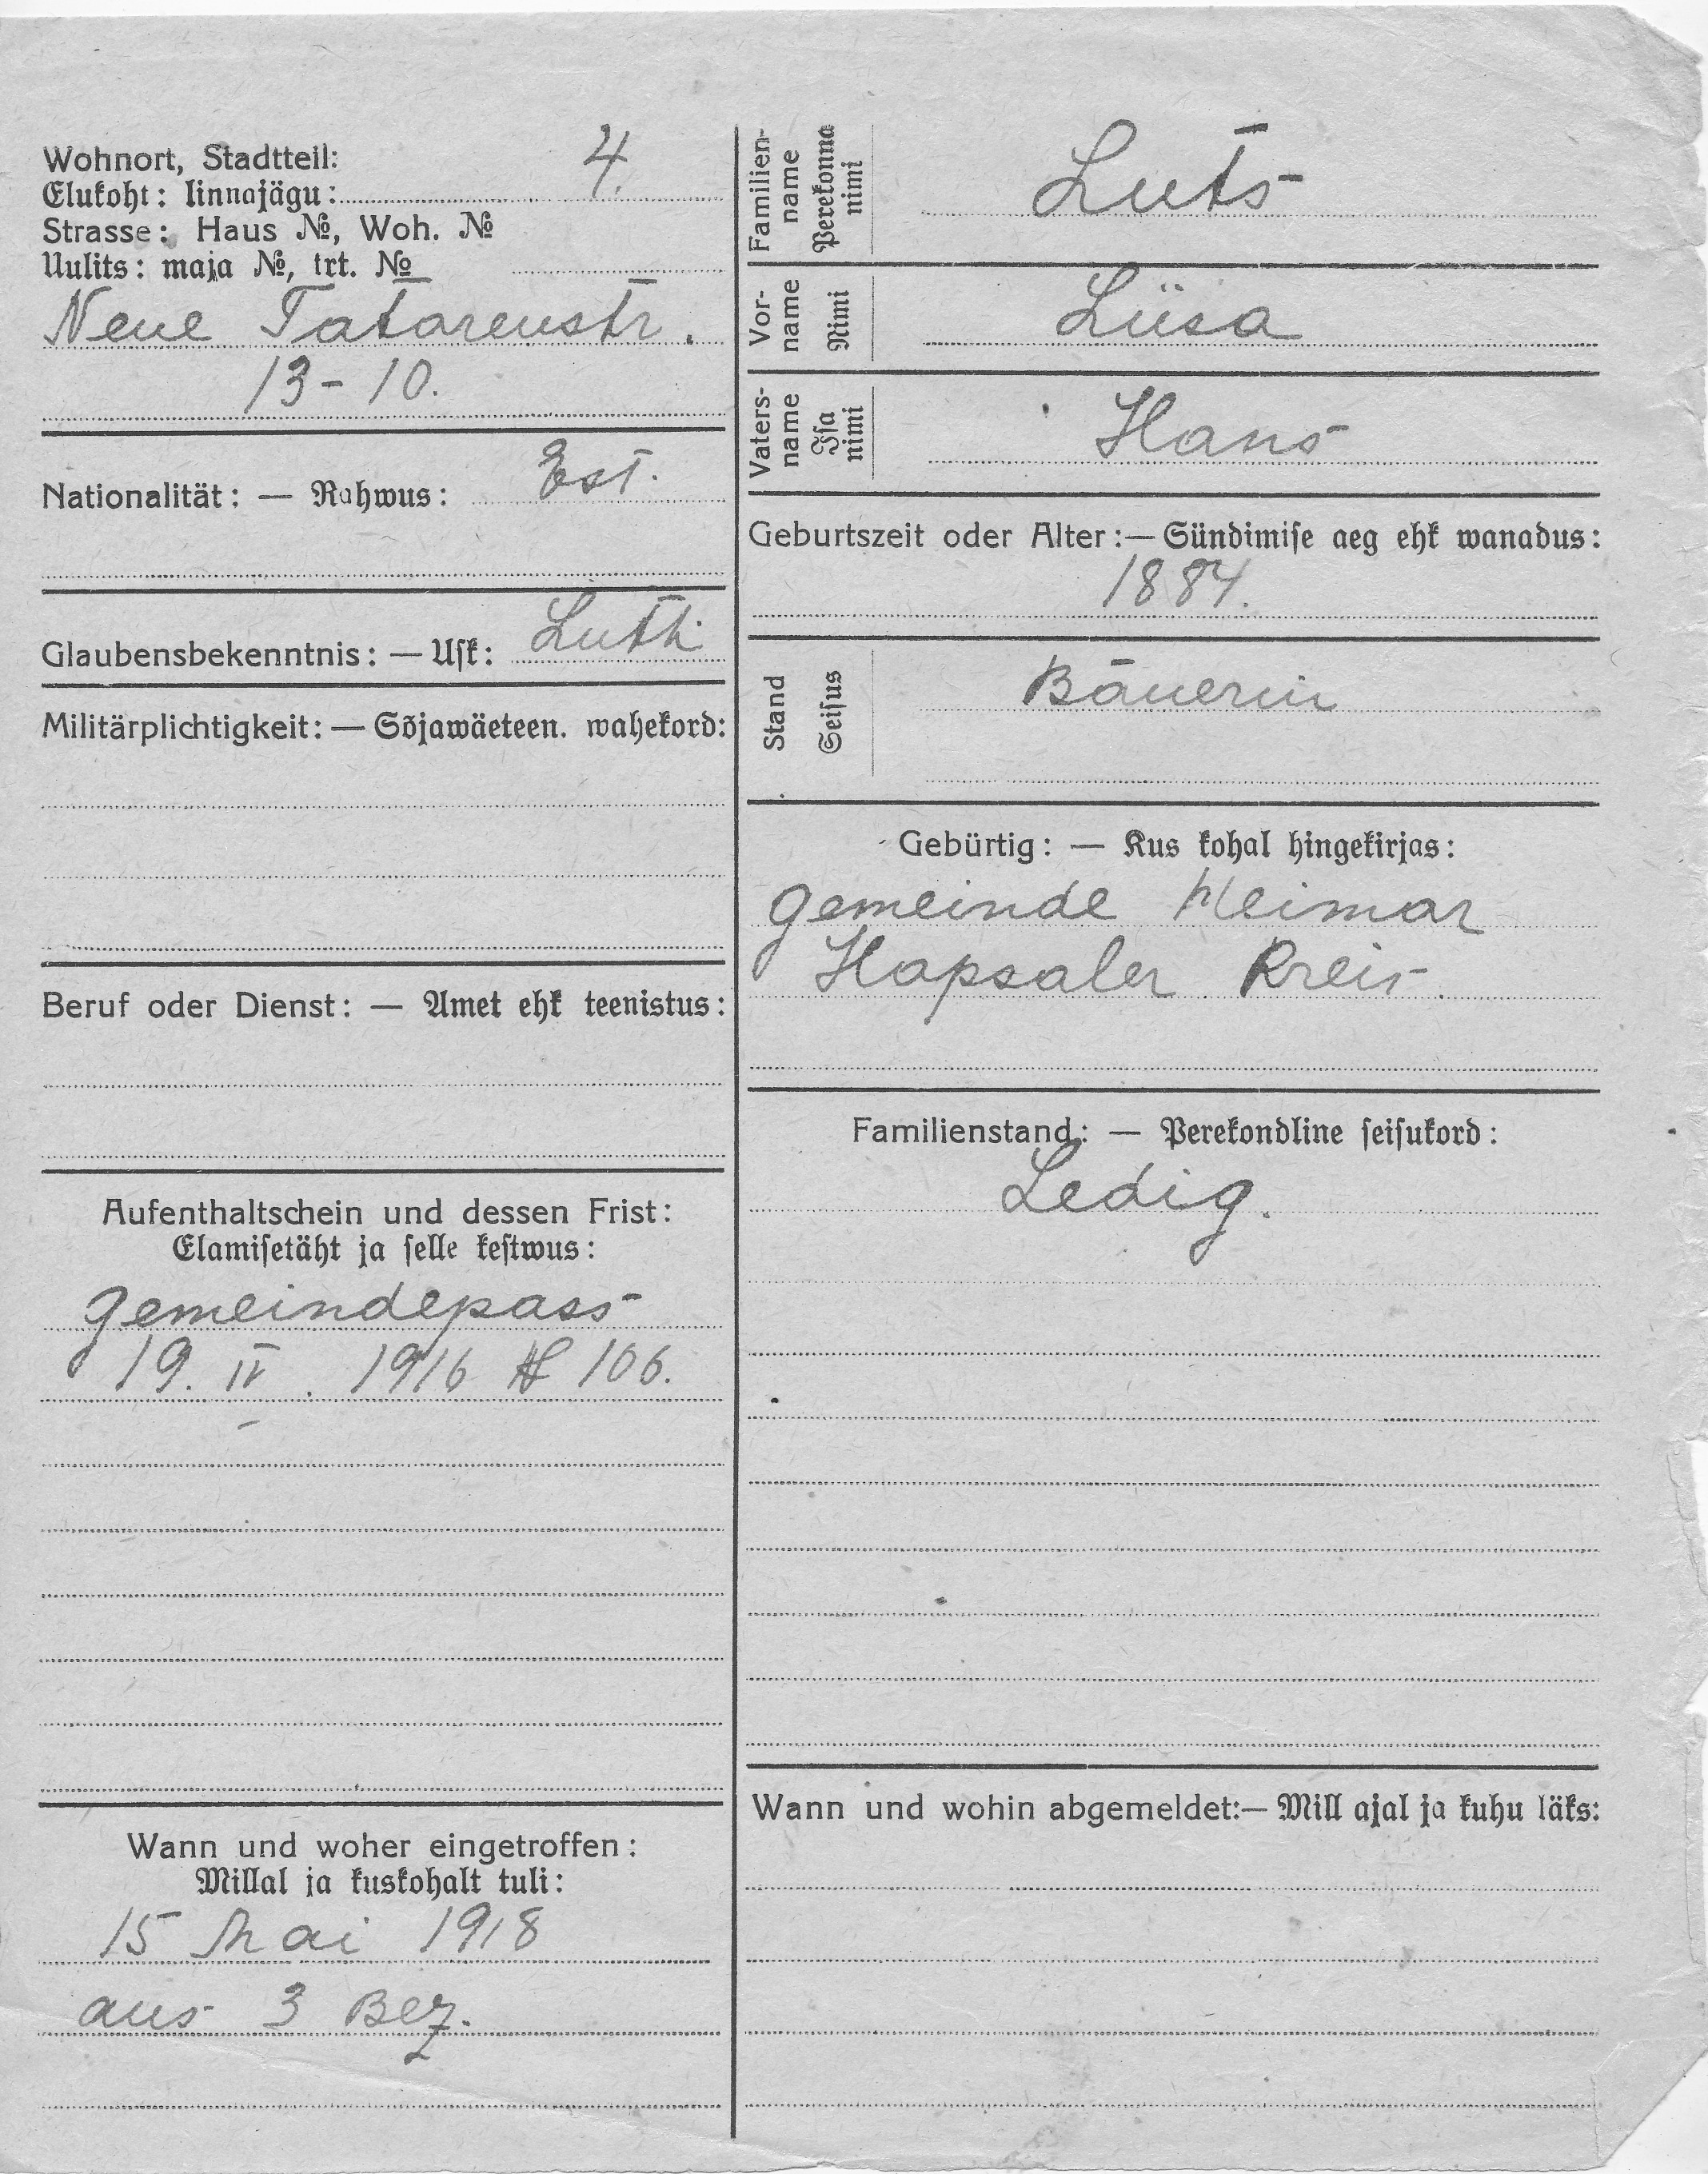 Wohnort, Stadtteil: 4.
Elukoht: linnajägu:
Strasse: Haus №, Woh. №
Uulits: maja №, krt. №
Neue Tatarenstr.
13-10.
Nationalität: — Rahwus: Est.
Glaubensbekenntnis: — Usk: Luth.
Militärplichtigkeit: — Sõjawäeteen. wahekord:
Beruf oder Dienst: — Amet ehk teenistus:
Aufenthaltschein und dessen Frist:
Elamisetäht ja selle kestwus:
Gemeindepass
19. IV. 1916 № 106.
Wann und woher eingetroffen:
Millal ja kuskohalt tuli:
15 Mai 1918
aus 3 Bez.
Familien-
name
Perekonna
nimi
Luts
Vor-
name
Nimi
Liisa
Vaters-
name
Isa
nimi
Hans
Geburtszeit oder Alter:— Sündimise aeg ehk wanadus:
1884.
Stand
Seisus
Bäuerin
Gebürtig: — Kus kohal hingekirjas:
Gemeinde
Hapsaler Kreis.
Familienstand: — Perekondline seisukord:
Ledig.
Wann und wohin abgemeldet:— Mill ajal ja kuhu läks: